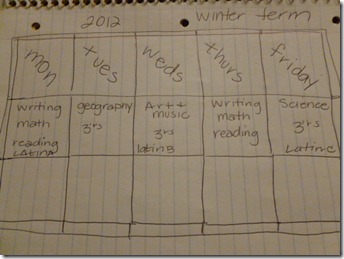 2012 winter term
mon tues weds thurs friday
writing
math
reading
Latin A
geography
3rs
Art +
music
3rs
latin B
writing
math
reading
Science
3rs
Latin C